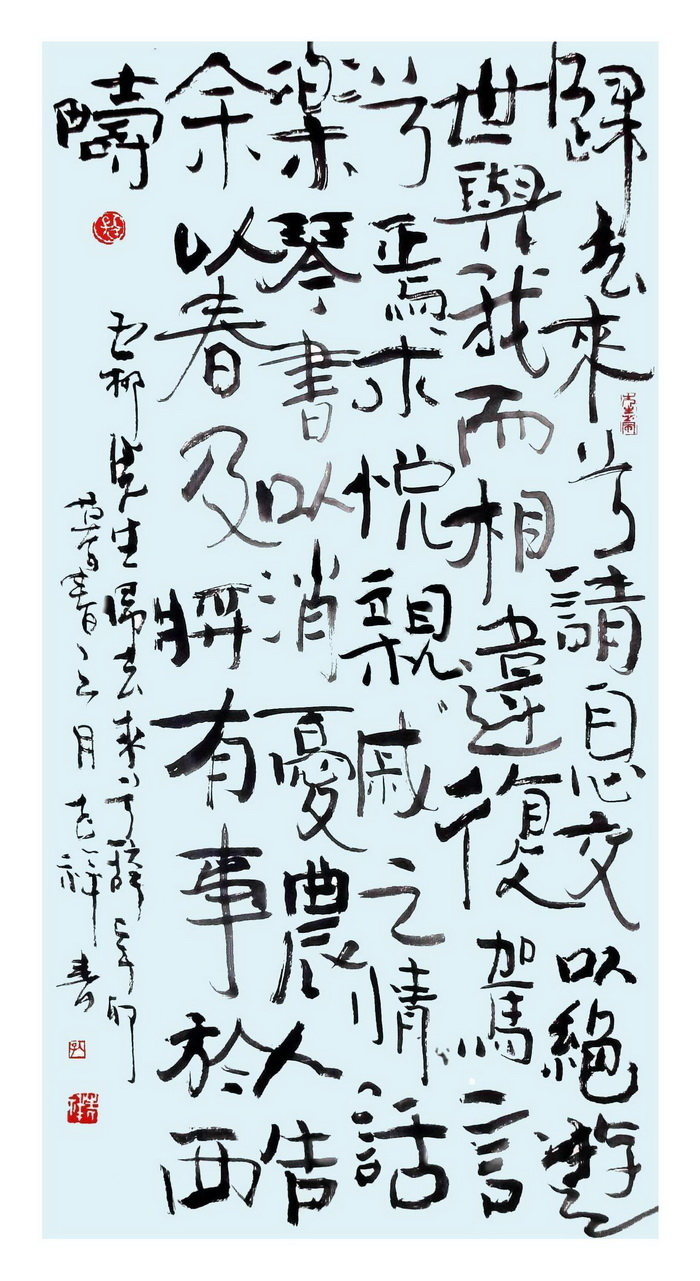 歸去來兮請息交以絕遊
世與我而相違復駕言
兮焉求悅親戚之情話
樂琴書以消憂農人告
余以春及將有事於西
疇
五柳先生歸去来兮辞辛卯
暮春三月祥書